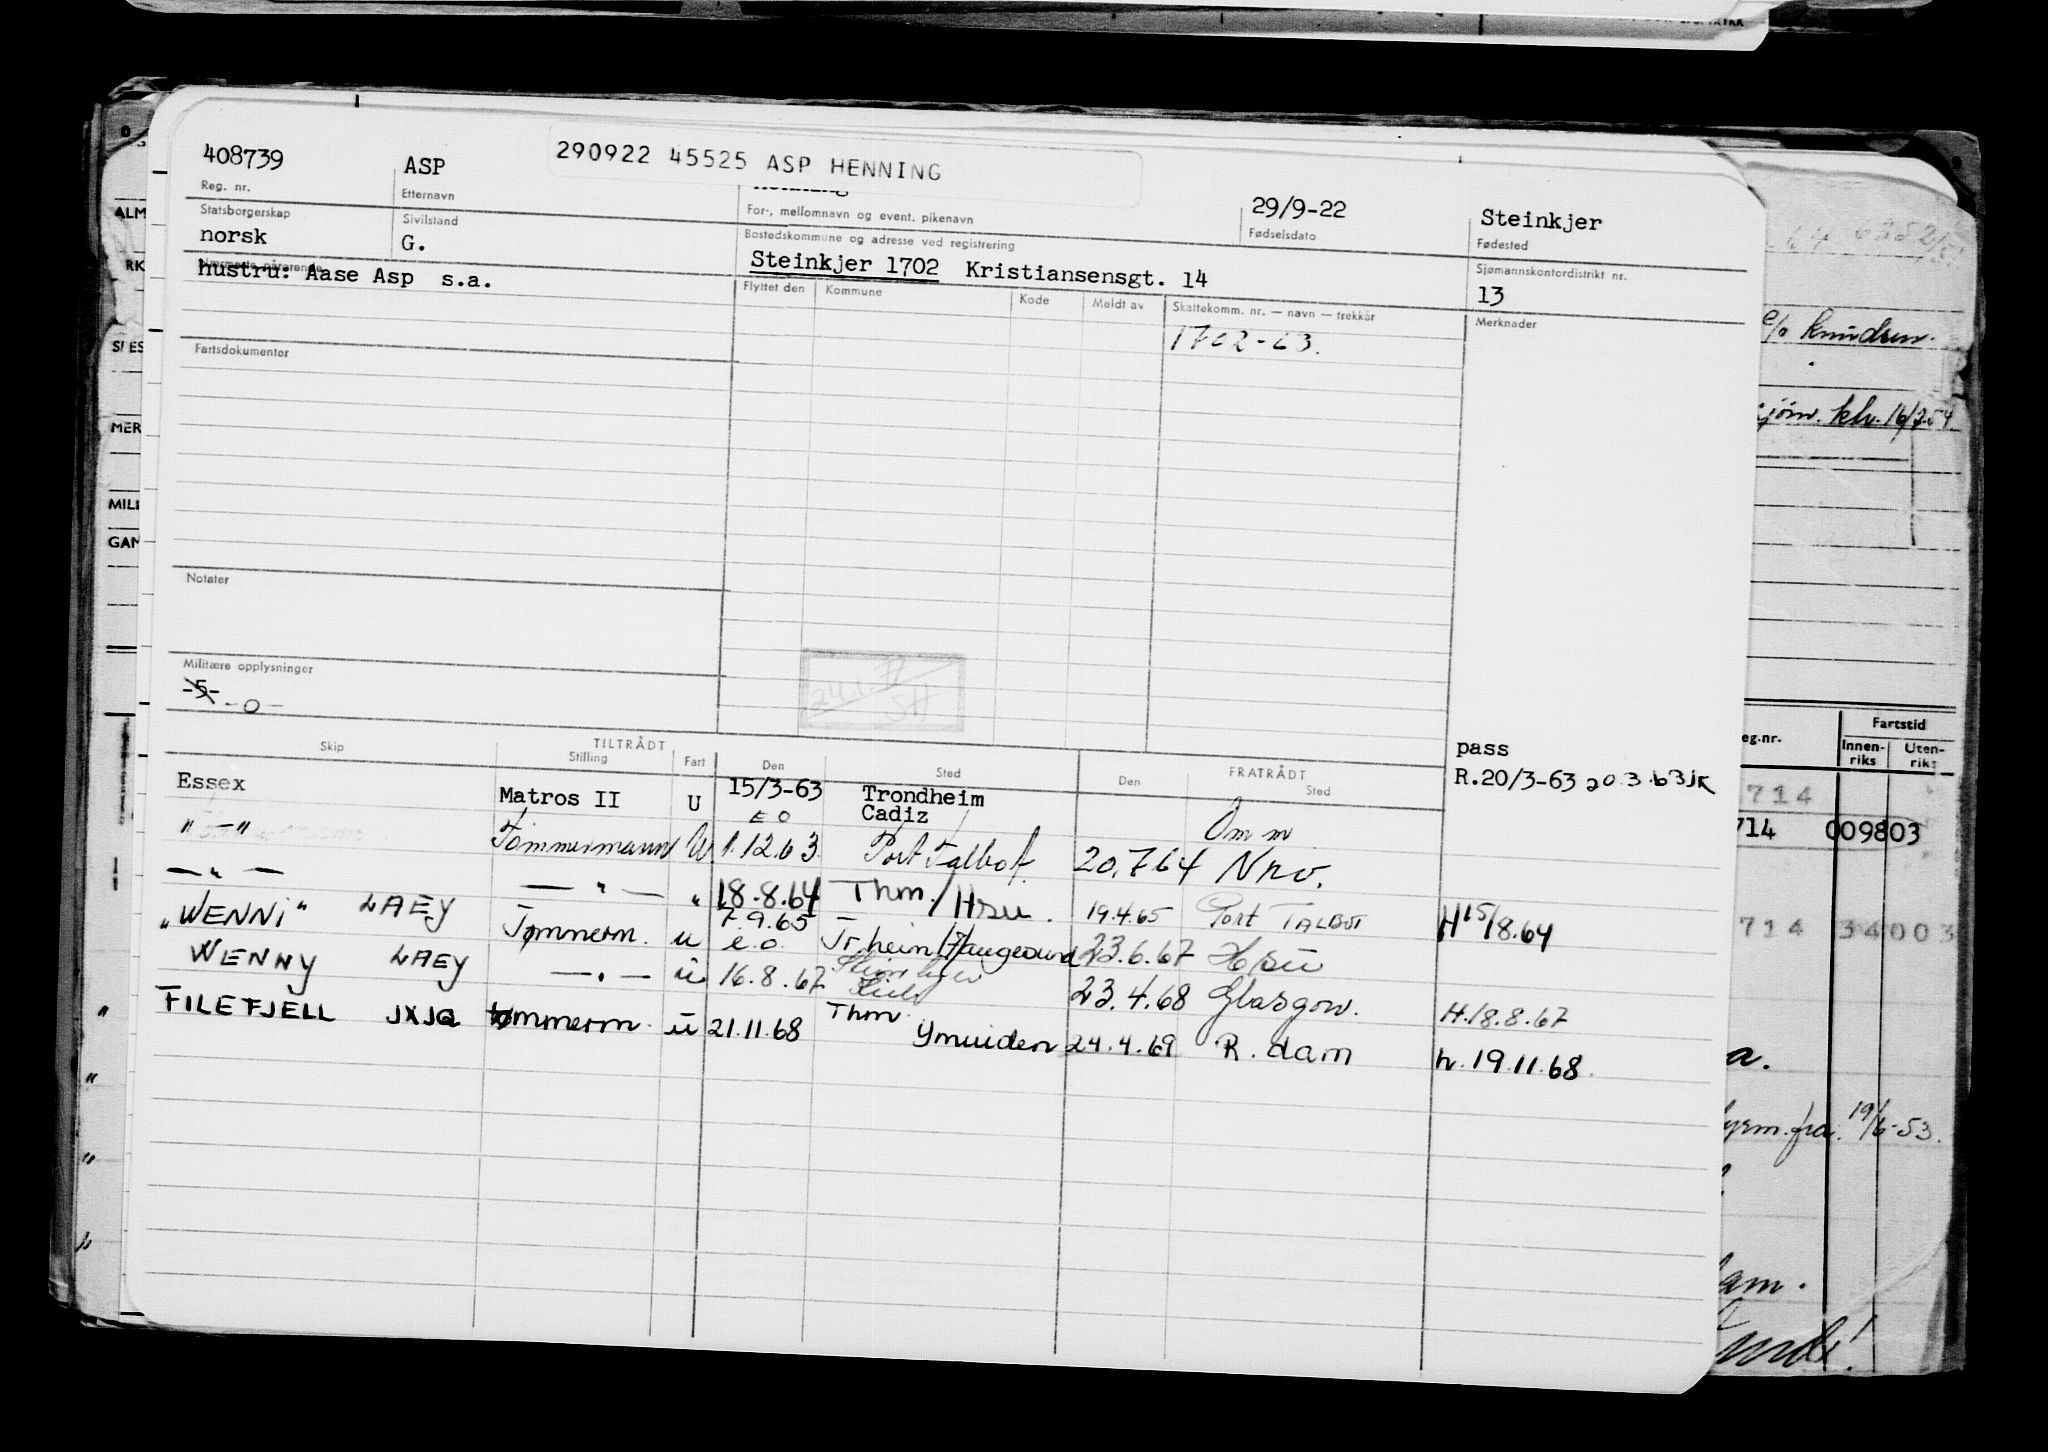 290922 45525 ASP HENNING
408739 ASP 29/9-22 Steinkjer
Reg. nr. Etternavn For-, mellomnavn og event. pikenavn Fødselsdato Fødested
Statsborgerskap Sivilstand Bostedskommune og adresse ved registrering Sjømannskontordistrikt nr.
norsk G. Steinkjer 1702 Kristiansensgt. 14 13
hustru: Aase Asp s.a.
Flyttet den Kommune Kode Meldt av Skattekomm. nr. — navn — trekkår Merknader
Fartsdokumenter
Notater
Militære opplysninger
-5- -0-
pass
R.20/3-63 20.3.63JK
TILTRÅDT FRATRÅDT
Skip Stilling Fart Den Sted Den Sted
Essex Matros II U 15/3-63 Trondheim
EO Cadiz Omm
" — " Tømmermann U 1.12.63 Port Talbot 20.7.64 Nrv.
— " — — " — " 18.8.64 Thm./Hsu. 19.4.65 Port TALBOT H15/8.64
"WENNI" LAEY Tømmerm. u 7.9.65 e.o. Tr.heim/Haugesund 23.6.67 Hsu
WENNY LAEY — " — u 16.8.67 23.4.68 Glasgow. H.18.8.67
FILEFJELL JXJQ tømmerm. u 21.11.68 Thm Ymuiden 24.4.69 R.dam h.19.11.68
ALM
RK
MER
MILI
GAN
c/o Knudsen.
klv. 16/3-54
eg.nr. Fartstid
Innen-riks Uten-riks
714
714 009803
714 34003
a.
fra. 19/6-53.